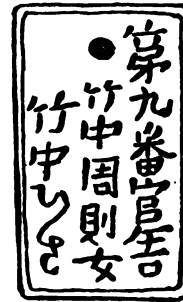 第九番官舎
竹中周則女
竹中ひさ